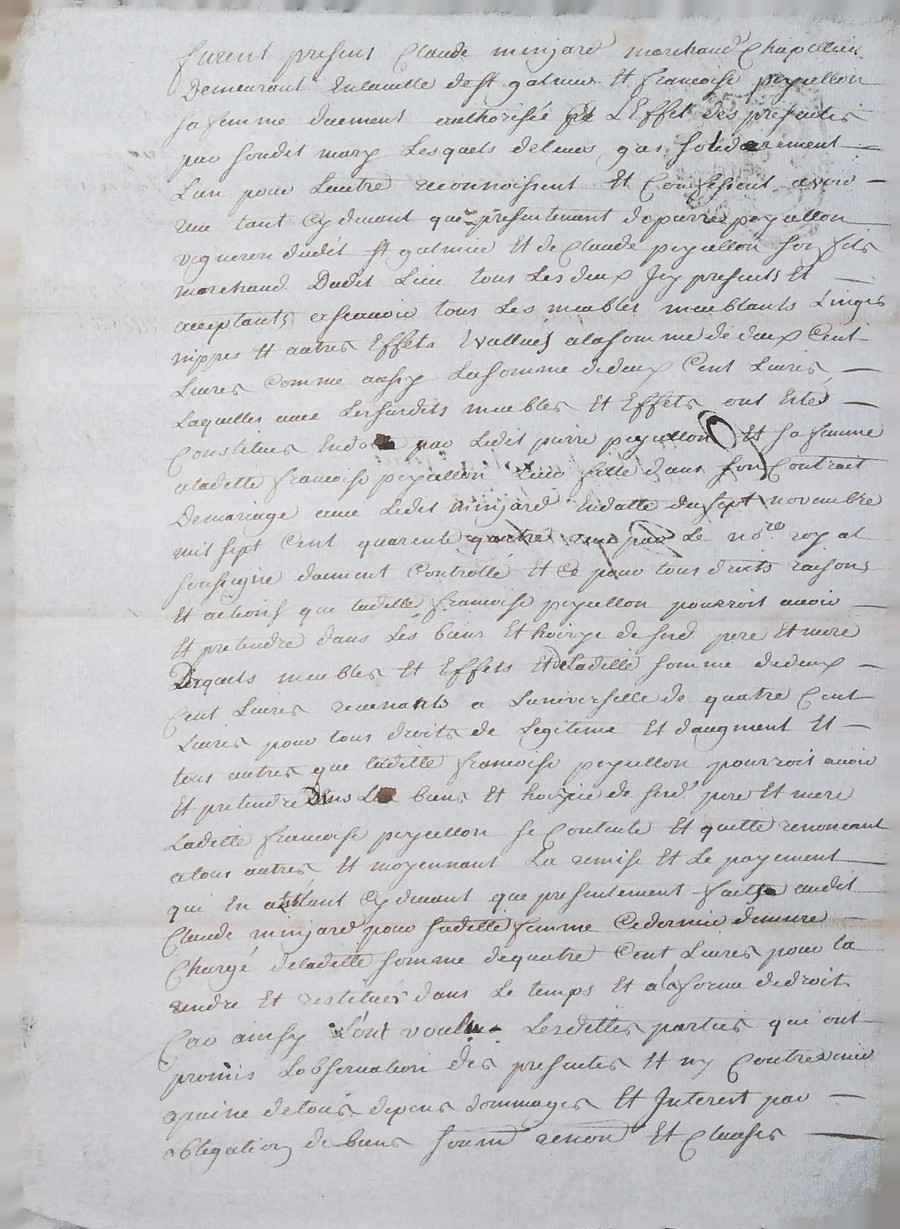 furent present Claude minjard marchand Chapellier
Demeurant Enlaville de st galmier Et francoise peyrellon
sa femme duement authorisée a L'Effet des presentes
par son dit mary Lesquels de leurs gré solidairement
L'un pour Lautre reconnoissent Et Confessent avoir
reu tant Cydevant que presentement de pierre peyrellon
vigneron dudit st galmier Et de Claude peyrellon son fils
marchand Dudit Lieu tous Les deux Icy presents Et
acceptants ascavoir tous Les meubles meublants Linges
nippes Et autres Effets Evallués alasomme de deux Cent
Livres Comme aussy Lasomme dedeux Cent Livres
Laquelle avec Lessusdits meubles Et Effets ont Esté
Constitués par Ledit pierre peyrellon Et sa femme
aladitte francoise peyrellon Leur fille dans son Contrait
Demariage avec Ledit minjard Endatte du sept novembre
mil sept Cent quarente quattre par Le nore royal
soussigné duement Controllé Et Ce pour tous droits raisons
Et actions que laditte francoise peyrellon pourroit avoir
Et pretendre dans Les biens Et hoirye de sesd pere Et mere
Desquels meubles Et Effets Etdeladitte somme dedeux
Cent Livres revenants a Luniverselle de quatre Cent
Livres pour tous droits de Legitime Et daugment Et
tous autres que laditte francoise peyrellon pourroit avoir
Et pretendre Dans Les biens Et hoirie de sesd pere Et mere
Laditte francoise peyrellon se Contente Et quitte renoncant
atous autres Et moyennant La remise Et Le payement
qui En a Estant Cydevant que presentement faitte audit
Claude minjard pour saditte femme Cedernier demeure
Chargé deladitte somme dequatre Cent Livres pour la
rendre Et restituer dans Le temps Et alaforme dedroit
Car ainsy L'ont voulu Lesdittes parties qui ont
promis Lobservation des presentes Et ny Contrevenir
apaine detous depens dommages Et Interest par
obligation de biens soum renon Et Clauses